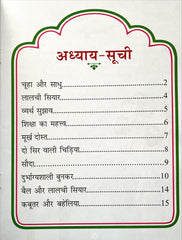 अध्याय-सूची
चूहा और साधु..........2
लालची सियार..........4
व्यर्थ सुझाव..........5
शिक्षा का महत्त्व..........6
मूर्ख दोस्त..........7
दो सिर वाली चिड़िया..........8
सौदा..........9
दुर्भाग्यशाली बुनकर..........10
बैल और लालची सियार..........14
कबूतर और बहेलिया..........15